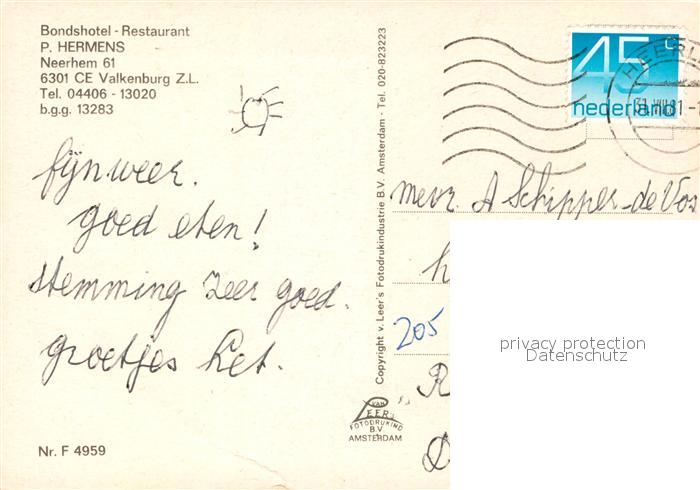 Bondshotel - Restaurant
P. HERMENS
Neerhem 61
6301 CE Valkenburg Z.L.
Tel. 04406 - 13020
b.g.g. 13283
fijn weer.
goed eten!
stemming zeer goed.
groetjes Let.
Nr. F 4959
Copyright v. Leer's Fotodrukindustrie B.V. Amsterdam - Tel. 020-823223
VAN
LEER's
FOTODRUKIND
B.V.
AMSTERDAM
45 c
nederland
HEERL
31 VIII 81
mevr. A Schipper-de Vos
h
205
"R
privacy protection
Datenschutz